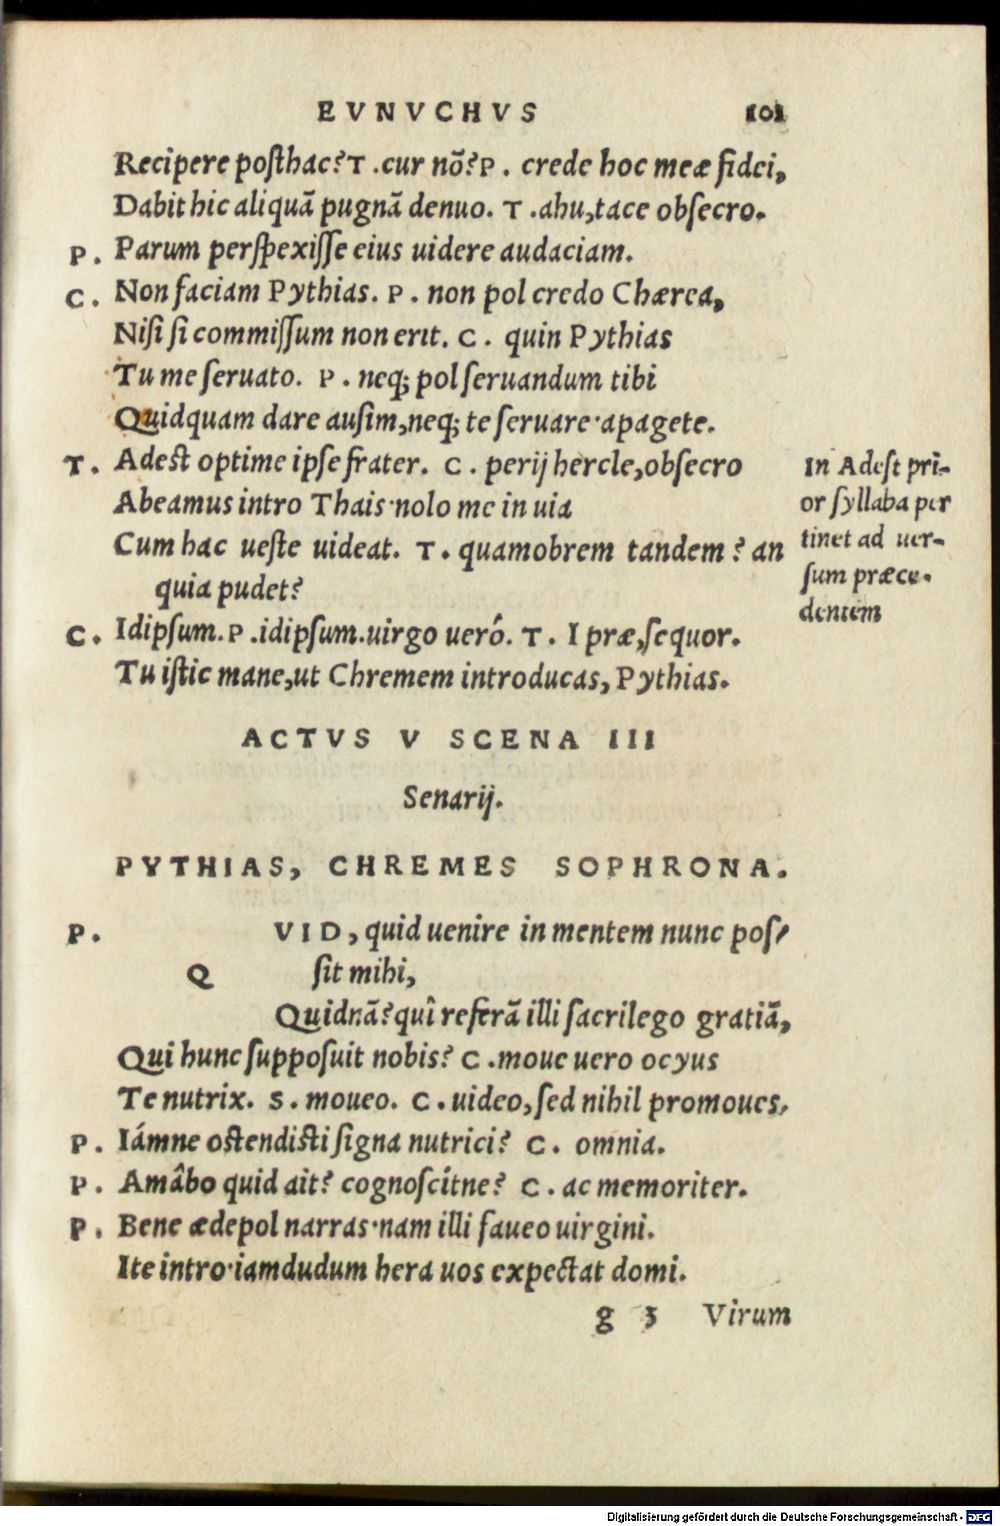 EVNVCHVS 101
Recipere posthac? T. cur nõ? P. crede hoc meæ fidei,
Dabit hic aliquã pugnã denuo. T. ahu, tace obsecro.
P. Parum perspexisse eius uidere audaciam.
C. Non faciam Pythias. P. non pol credo Chærea,
Nisi si commissum non erit. C. quin Pythias
Tu me seruato. P. neq; pol seruandum tibi
Quidquam dare ausim, neq; te seruare·apagete.
T. Adest optime ipse frater. C. perij hercle, obsecro
Abeamus intro Thais·nolo me in uia
Cum hac ueste uideat. T. quamobrem tandem? an
quia pudet?
C. Idipsum. P. idipsum. uirgo uerô. T. I præ, sequor.
Tu istic mane, ut Chremem introducas, Pythias.
In Adest pri-
or syllaba per
tinet ad uer-
sum præce-
dentem
ACTVS V SCENA III
Senarij.
PYTHIAS, CHREMES SOPHRONA.
P. QVID, quid uenire in mentem nunc pos-
sit mihi,
Quidnã? quî referã illi sacrilego gratiã,
Qui hunc supposuit nobis? C. moue uero ocyus
Te nutrix. S. moueo. C. uideo, sed nihil promoues.
P. Iámne ostendisti signa nutrici? C. omnia.
P. Amâbo quid ait? cognoscítne? C. ac memoriter.
P. Bene ædepol narras·nam illi faueo uirgini.
Ite intro·iamdudum hera uos expectat domi.
g 3 Virum
Digitalisierung gefördert durch die Deutsche Forschungsgemeinschaft - DFG